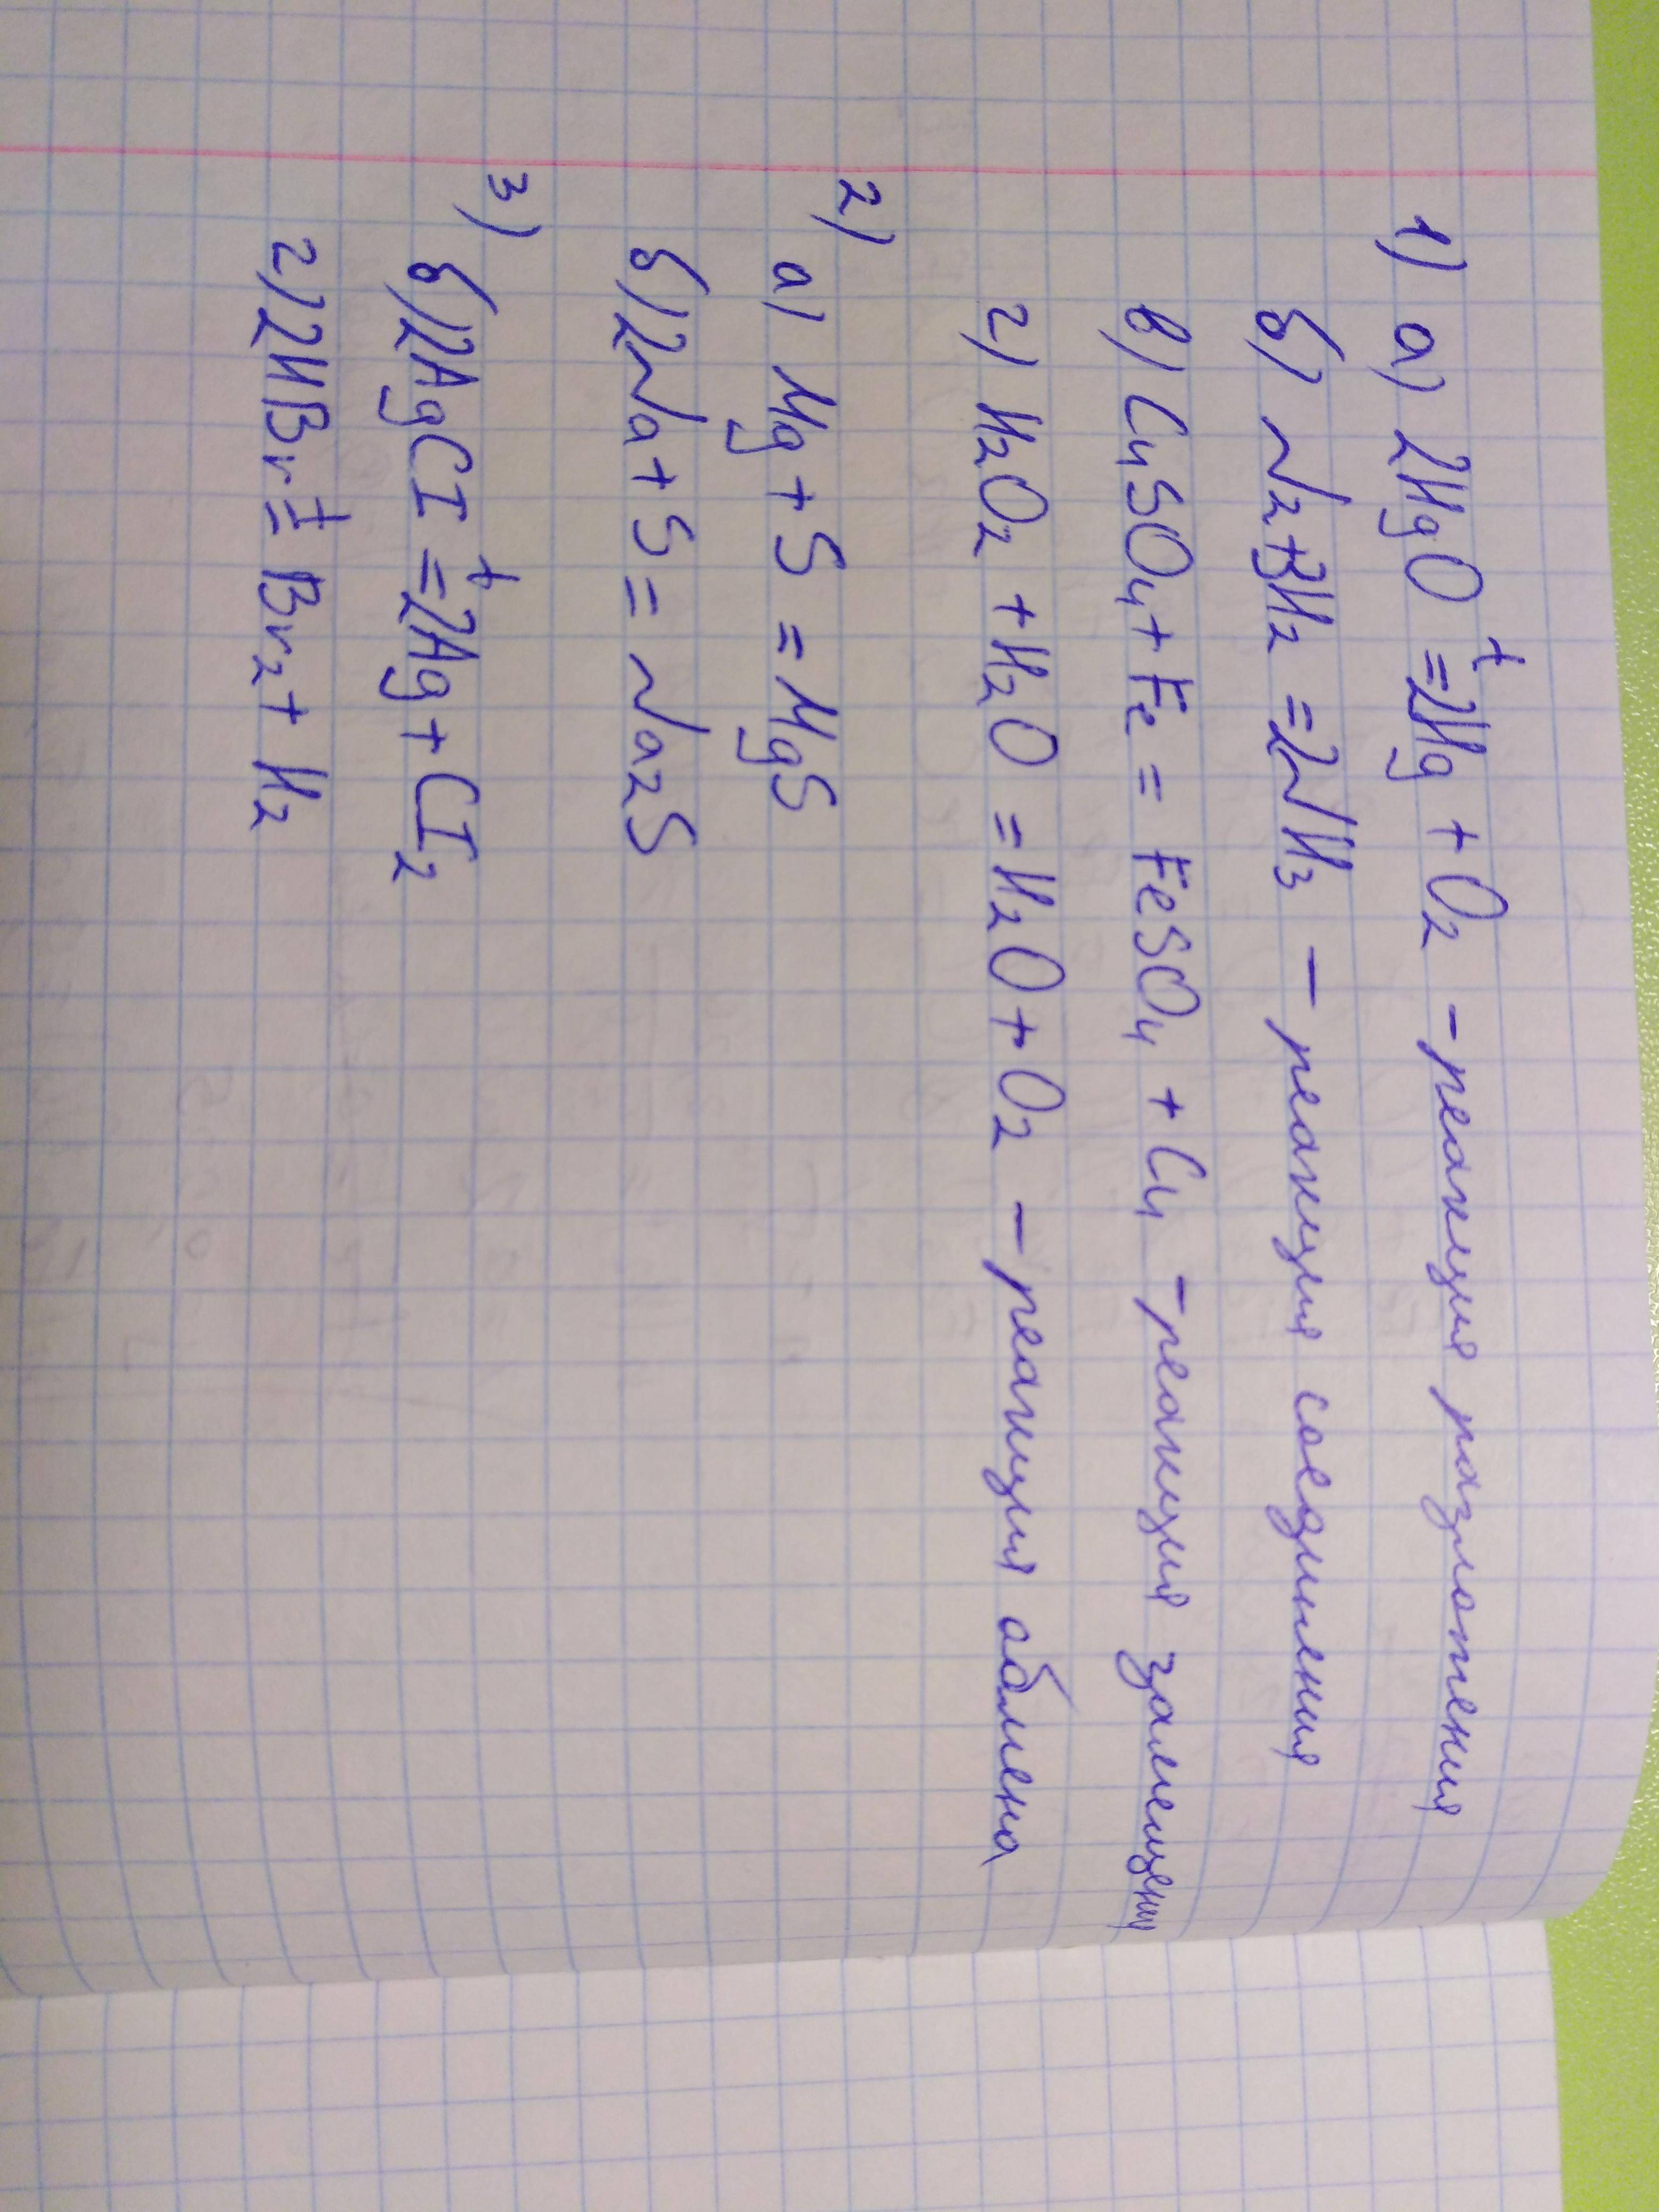 1) а) 2HgO =ᵗ 2Hg + O₂ – реакция разложения
б) N₂+3H₂ =2NH₃ – реакция соединения
в) CuSO₄+Fe = FeSO₄ + Cu – реакция замещения
г) H₂O₂ +H₂O =H₂O+O₂ – реакция обмена
2)
а) Mg + S = MgS
б) 2Na + S = Na₂S
3)
б) 2AgCI =ᵗ 2Ag + CI₂
г) 2HBr =ᵗ Br₂+ H₂